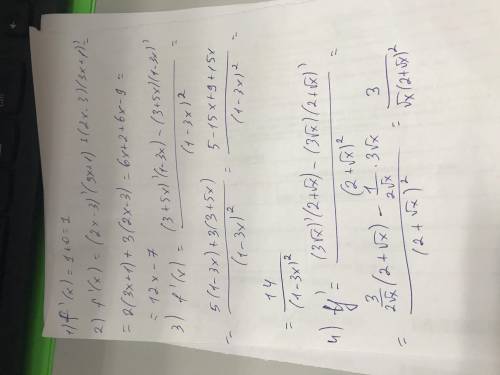 1) f'(x) = 1+0 = 1
2) f'(x) = (2x-3)'(3x+1)+(2x-3)(3x+1)' =
= 2(3x+1)+3(2x-3) = 6x+2+6x-9 =
= 12x-7
3) f'(x) = \frac{(3+5x)'(1-3x)-(3+5x)(1-3x)'}{(1-3x)^2} =
= \frac{5(1-3x)+3(3+5x)}{(1-3x)^2} = \frac{5-15x+9+15x}{(1-3x)^2} =
= \frac{14}{(1-3x)^2}
4) y' = \frac{(3√x)'(2+√x)-(3√x)(2+√x)'}{(2+√x)^2} =
= \frac{\frac{3}{2√x}(2+√x)-\frac{1}{2√x}·3√x}{(2+√x)^2} = \frac{3}{√x(2+√x)^2}